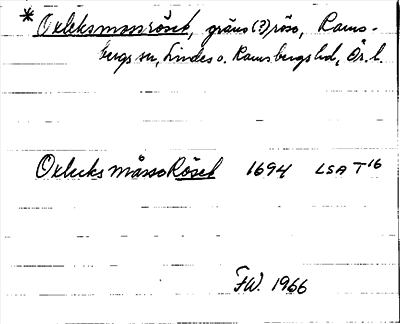 * Oxleksmossröset, gräns(?)röse, Rams-
bergs sn, Lindes o. Ramsbergs hd, Ör. l.
Oxleks måsso Röset 1694 LSA T16
FW. 1966